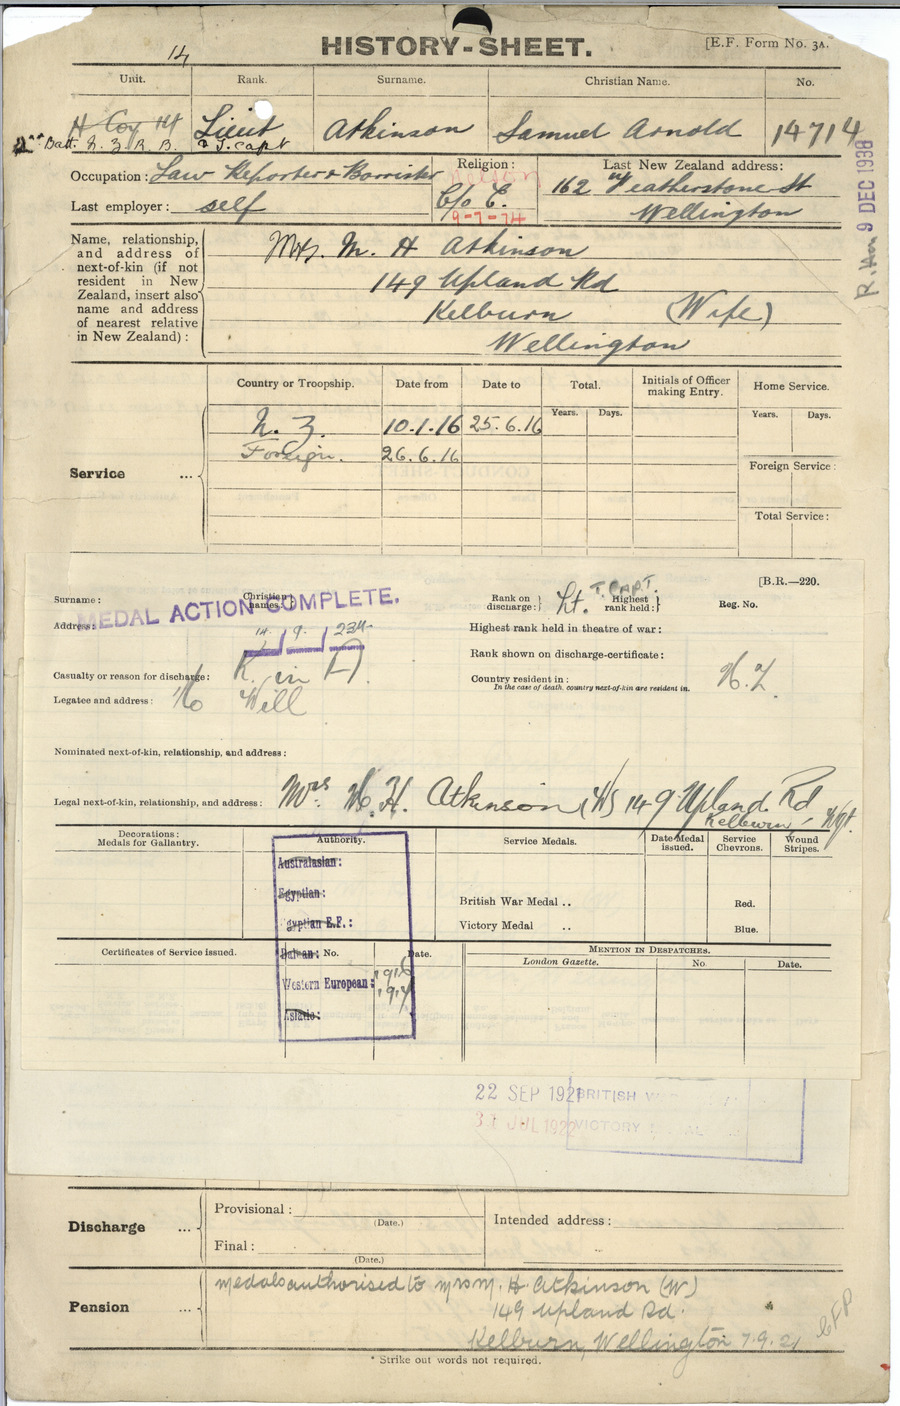 HISTORY-SHEET.
[E.F. Form No. 3A.
14
Unit. Rank. Surname. Christian Name. No.
H Coy 14
2nd Batt. N.Z.R.B. Lieut Atkinson Samuel Arnold 14714
& T. Capt
R.Hm 9 DEC 1938
Occupation: Law Reporter & Barrister
Last employer: self
Religion:
Nelson
C/o E.
9-7-74
Last New Zealand address:
162 Featherstone St
Wellington
Name, relationship,
and address of
next-of-kin (if not
resident in New
Zealand, insert also
name and address
of nearest relative
in New Zealand):
Mrs. M. H Atkinson
149 Upland Rd
Kelburn (Wife)
Wellington
Service ...
Country or Troopship. Date from Date to Total. Initials of Officer making Entry. Home Service.
Years. Days. Years. Days.
N.Z. 10.1.16 25.6.16
Foreign. 26.6.16
Foreign Service:
Total Service:
[B.R.—220.
Surname: Christian names:
MEDAL ACTION COMPLETE.
Rank on discharge: Lt. T. CAPT. Highest rank held: Reg. No.
Address:
14 9 234
Highest rank held in theatre of war:
Rank shown on discharge-certificate:
Casualty or reason for discharge: K. in A.
Country resident in: N.Z
In the case of death, country next-of-kin are resident in.
Legatee and address: No Will
Nominated next-of-kin, relationship, and address:
Legal next-of-kin, relationship, and address: Mrs. M. H. Atkinson (W) 149 Upland Rd
Kelburn, Wgt.
Decorations:
Medals for Gallantry.
Authority.
Service Medals. Date Medal issued. Service Chevrons. Wound Stripes.
Australasian:
Egyptian:
Egyptian E.F.:
British War Medal .. Red.
Victory Medal .. Blue.
Certificates of Service issued.
Balkan: No. Date.
Western European: 1916
1917
Asiatic:
MENTION IN DESPATCHES.
London Gazette. No. Date.
22 SEP 1921 BRITISH
31 JUL 1922 VICTORY
Discharge ...
Provisional:
(Date.)
Final:
(Date.)
Intended address:
Pension ...
Medals authorised to Mrs M. H. Atkinson (W)
149 Upland Rd.
Kelburn, Wellington 7.9.21
* Strike out words not required.